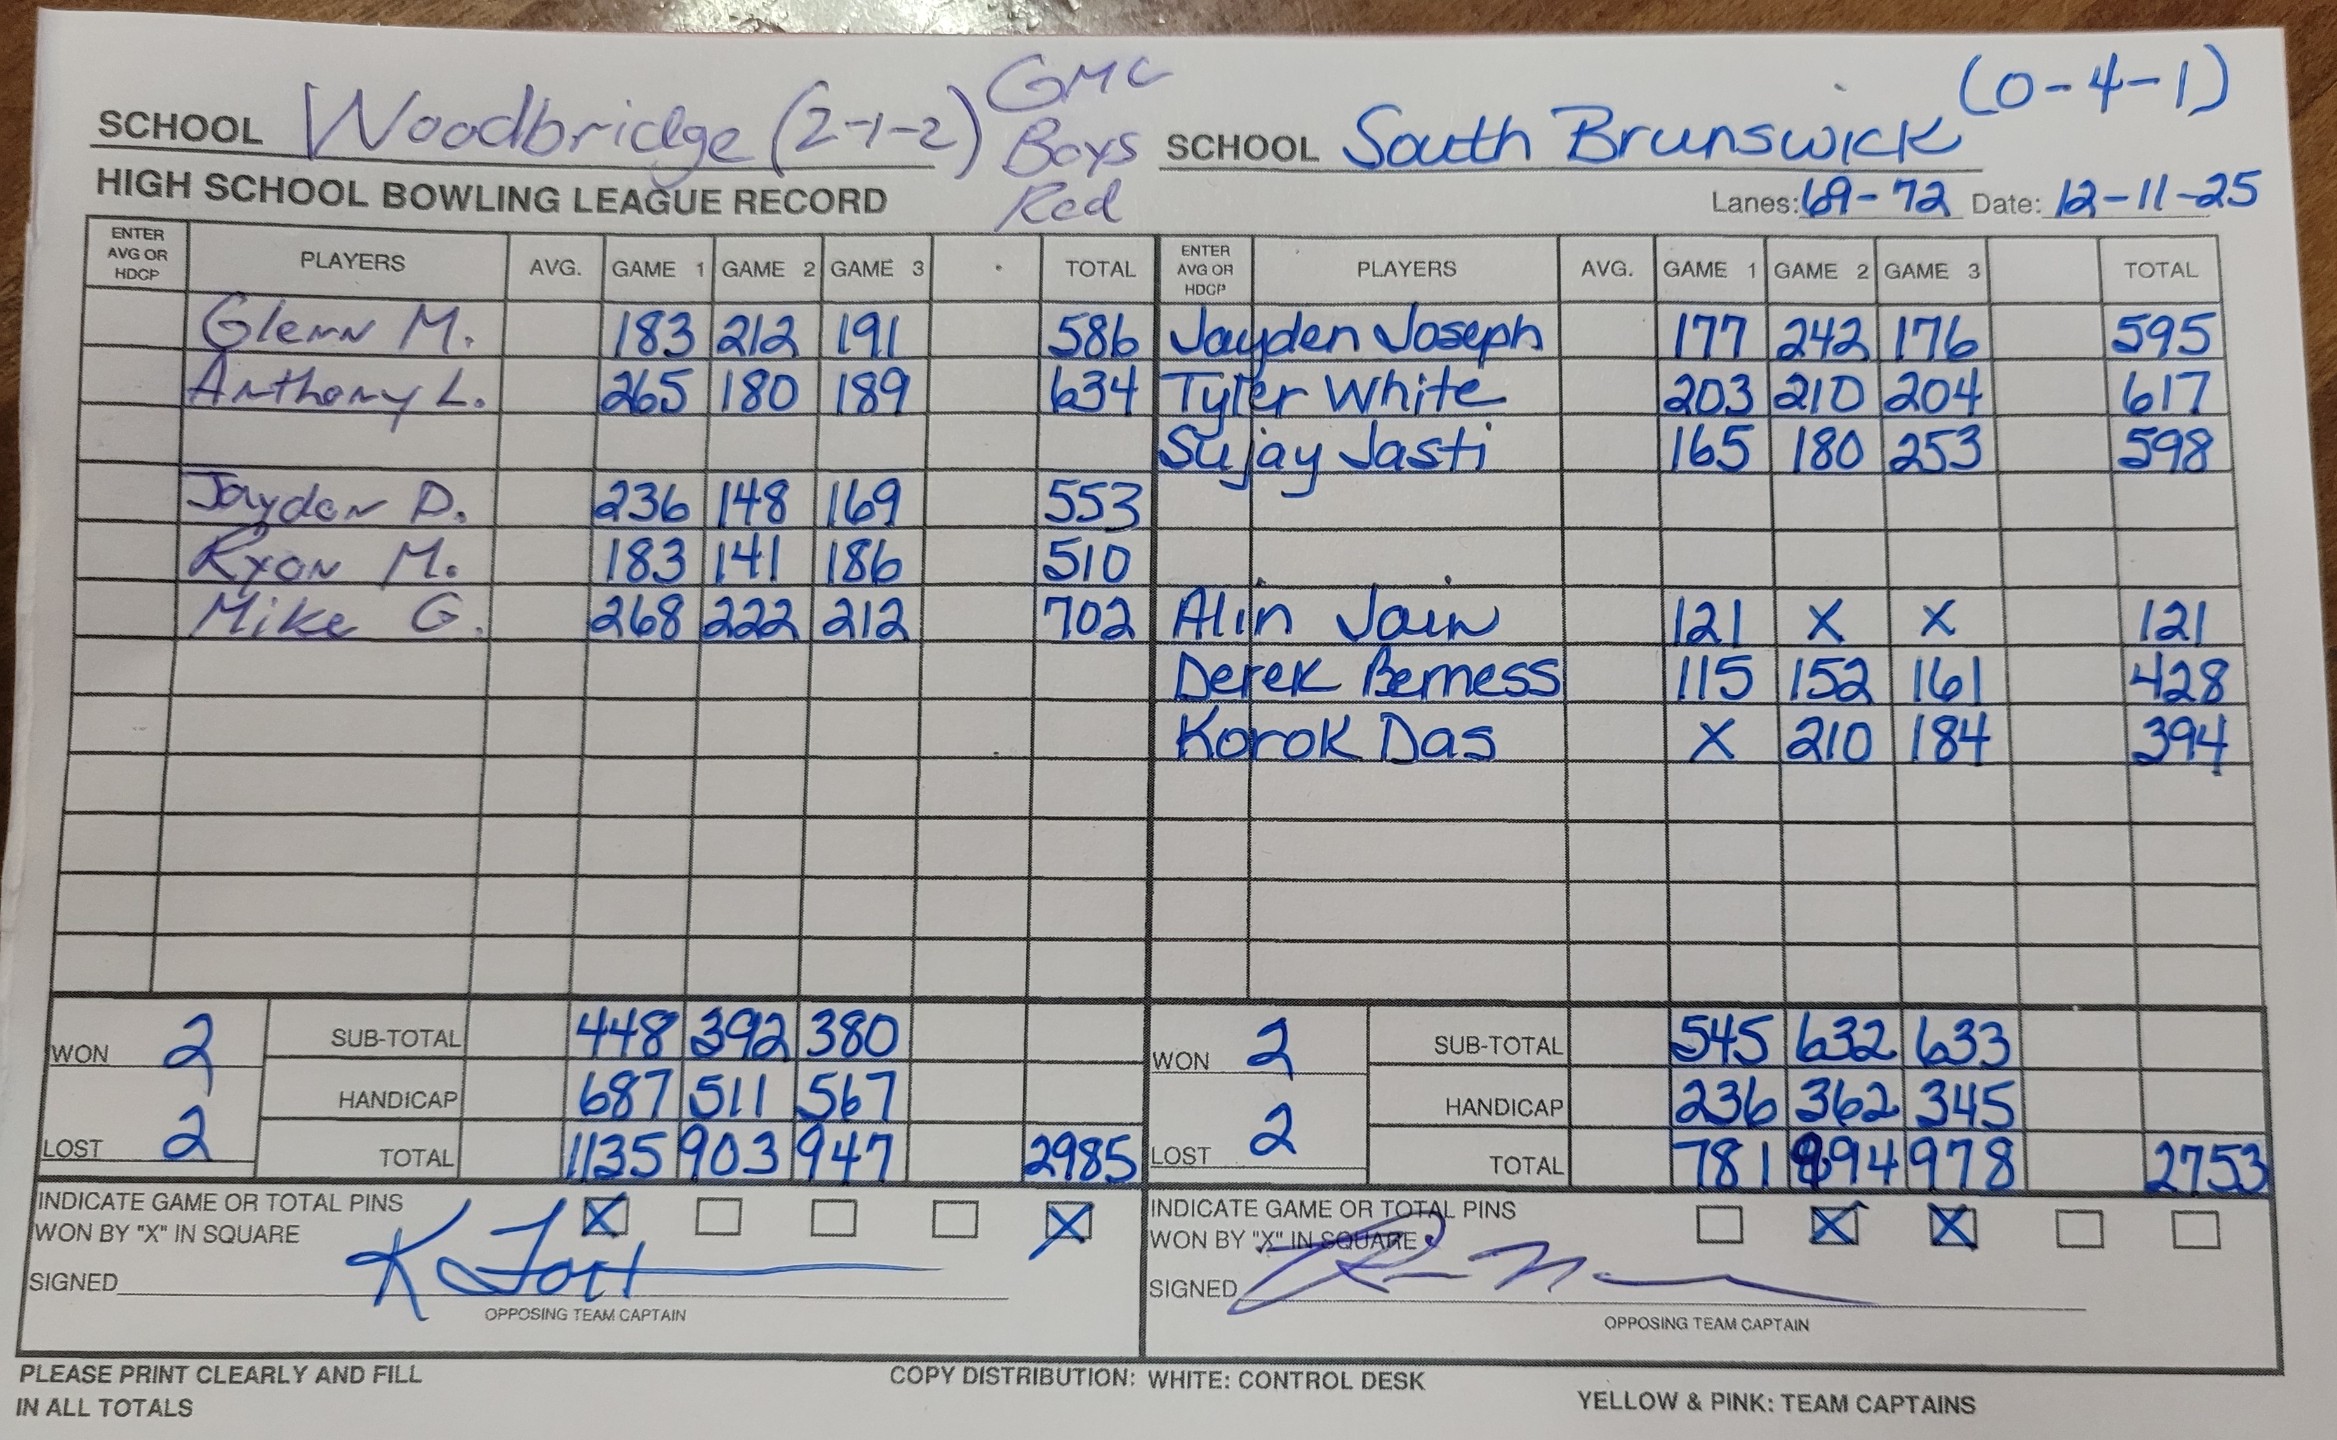 SCHOOL Woodbridge (2-1-2) GMC Boys Red SCHOOL South Brunswick (0-4-1)
HIGH SCHOOL BOWLING LEAGUE RECORD Lanes: 69-72 Date: 12-11-25
ENTER AVG OR HDCP PLAYERS AVG. GAME 1 GAME 2 GAME 3 TOTAL ENTER AVG OR HDCP PLAYERS AVG. GAME 1 GAME 2 GAME 3 TOTAL
Glenn M. 183 212 191 586 Jayden Joseph 177 242 176 595
Anthony L. 265 180 189 634 Tyler White 203 210 204 617
Sujay Jasti 165 180 253 598
Jayden D. 236 148 169 553
Ryan M. 183 141 186 510
Mike G. 268 222 212 702 Alin Jain 121 X X 121
Derek Berness 115 152 161 428
Korok Das X 210 184 394
WON 2 SUB-TOTAL 448 392 380 WON 2 SUB-TOTAL 545 632 633
HANDICAP 687 511 567 HANDICAP 236 362 345
LOST 2 TOTAL 1135 903 947 2985 LOST 2 TOTAL 781 994 978 2753
INDICATE GAME OR TOTAL PINS X X INDICATE GAME OR TOTAL PINS X X
WON BY "X" IN SQUARE WON BY "X" IN SQUARE
SIGNED SIGNED
OPPOSING TEAM CAPTAIN OPPOSING TEAM CAPTAIN
PLEASE PRINT CLEARLY AND FILL COPY DISTRIBUTION: WHITE: CONTROL DESK
IN ALL TOTALS YELLOW & PINK: TEAM CAPTAINS